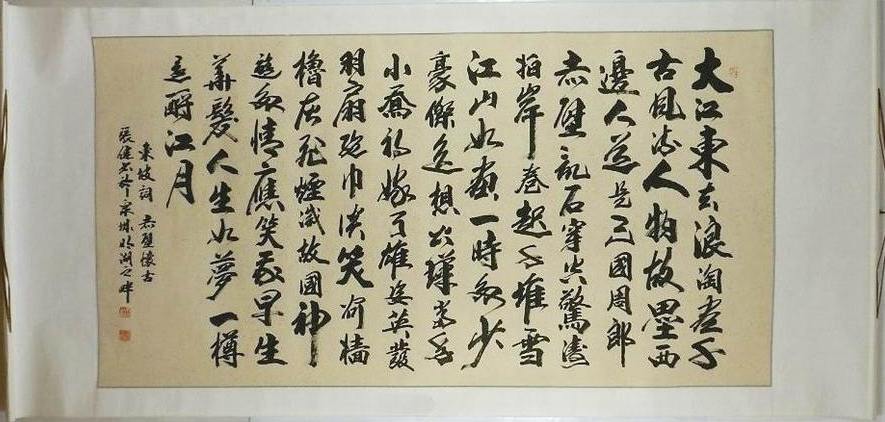 大江東去浪淘盡千
古風流人物故壘西
邊人道是三國周郎
赤壁亂石穿空驚濤
拍岸卷起千堆雪
江山如畫一時多少
豪傑遙想公瑾當年
小喬初嫁了雄姿英發
羽扇綸巾談笑間檣
櫓灰飛煙滅故國神
遊多情應笑我早生
華髮人生如夢一樽
還酹江月
東坡詞 赤壁懷古
張健書於泉城明湖之畔